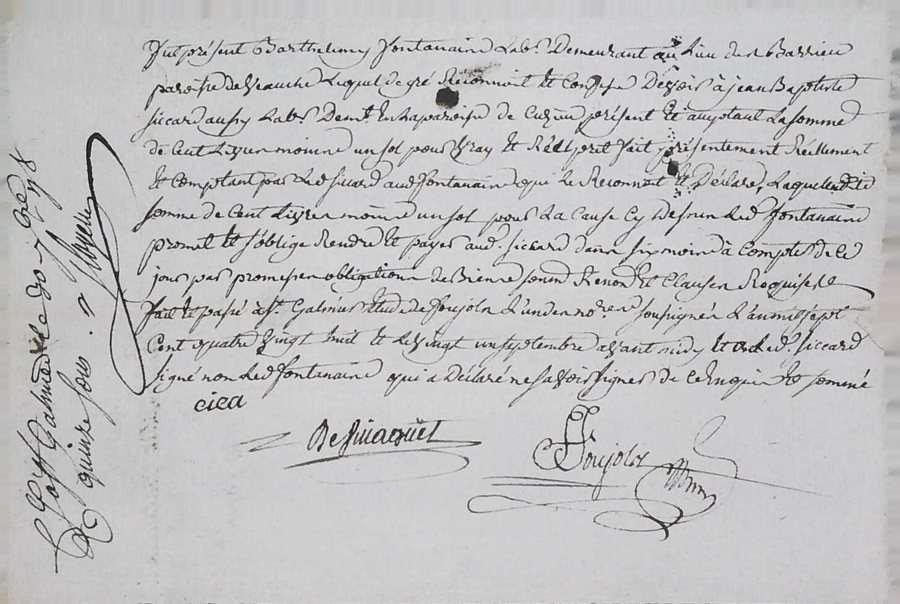 Fut présent Barthelemy fontanaine Lab.r Demeurant au Lieu de Barrieu
paroisse de Veauche Lequel de gré Reconnoit Et Confesse Devoir à jean Baptiste
siccard aussy Lab.r Dem.t En La paroisse de Cuzieu présent Et acceptant La somme
de Cent Livres moins un sol pour Vray Et Réel prest fait présentement Réellement
Et Comptant par Led. siccard aud. fontanaine qui Le Reconnoit Et Déclare, Laquelle dite
somme de Cent Livres moins un sol pour La Cause Cy Dessus Led. fontanaine
promet Et s'oblige Rendre Et payer aud. siccard dans six mois à Compter de Ce
jour par promesses obligations de Biens soum. Renon. Et Clauses Requises
fait Et passé à St. Galmier Etude de foujols L'un des no.res soussignés L'an mil sept
Cent quatre Vingt huit Et Le Vingt un septembre avant midy Et Led. siccard
signé non Led. fontanaine qui a Déclaré ne savoir signer de Ce Enquis Et sommé
cica
foujols
à St. Galmier Le 30 7bre 1788
quinze sous